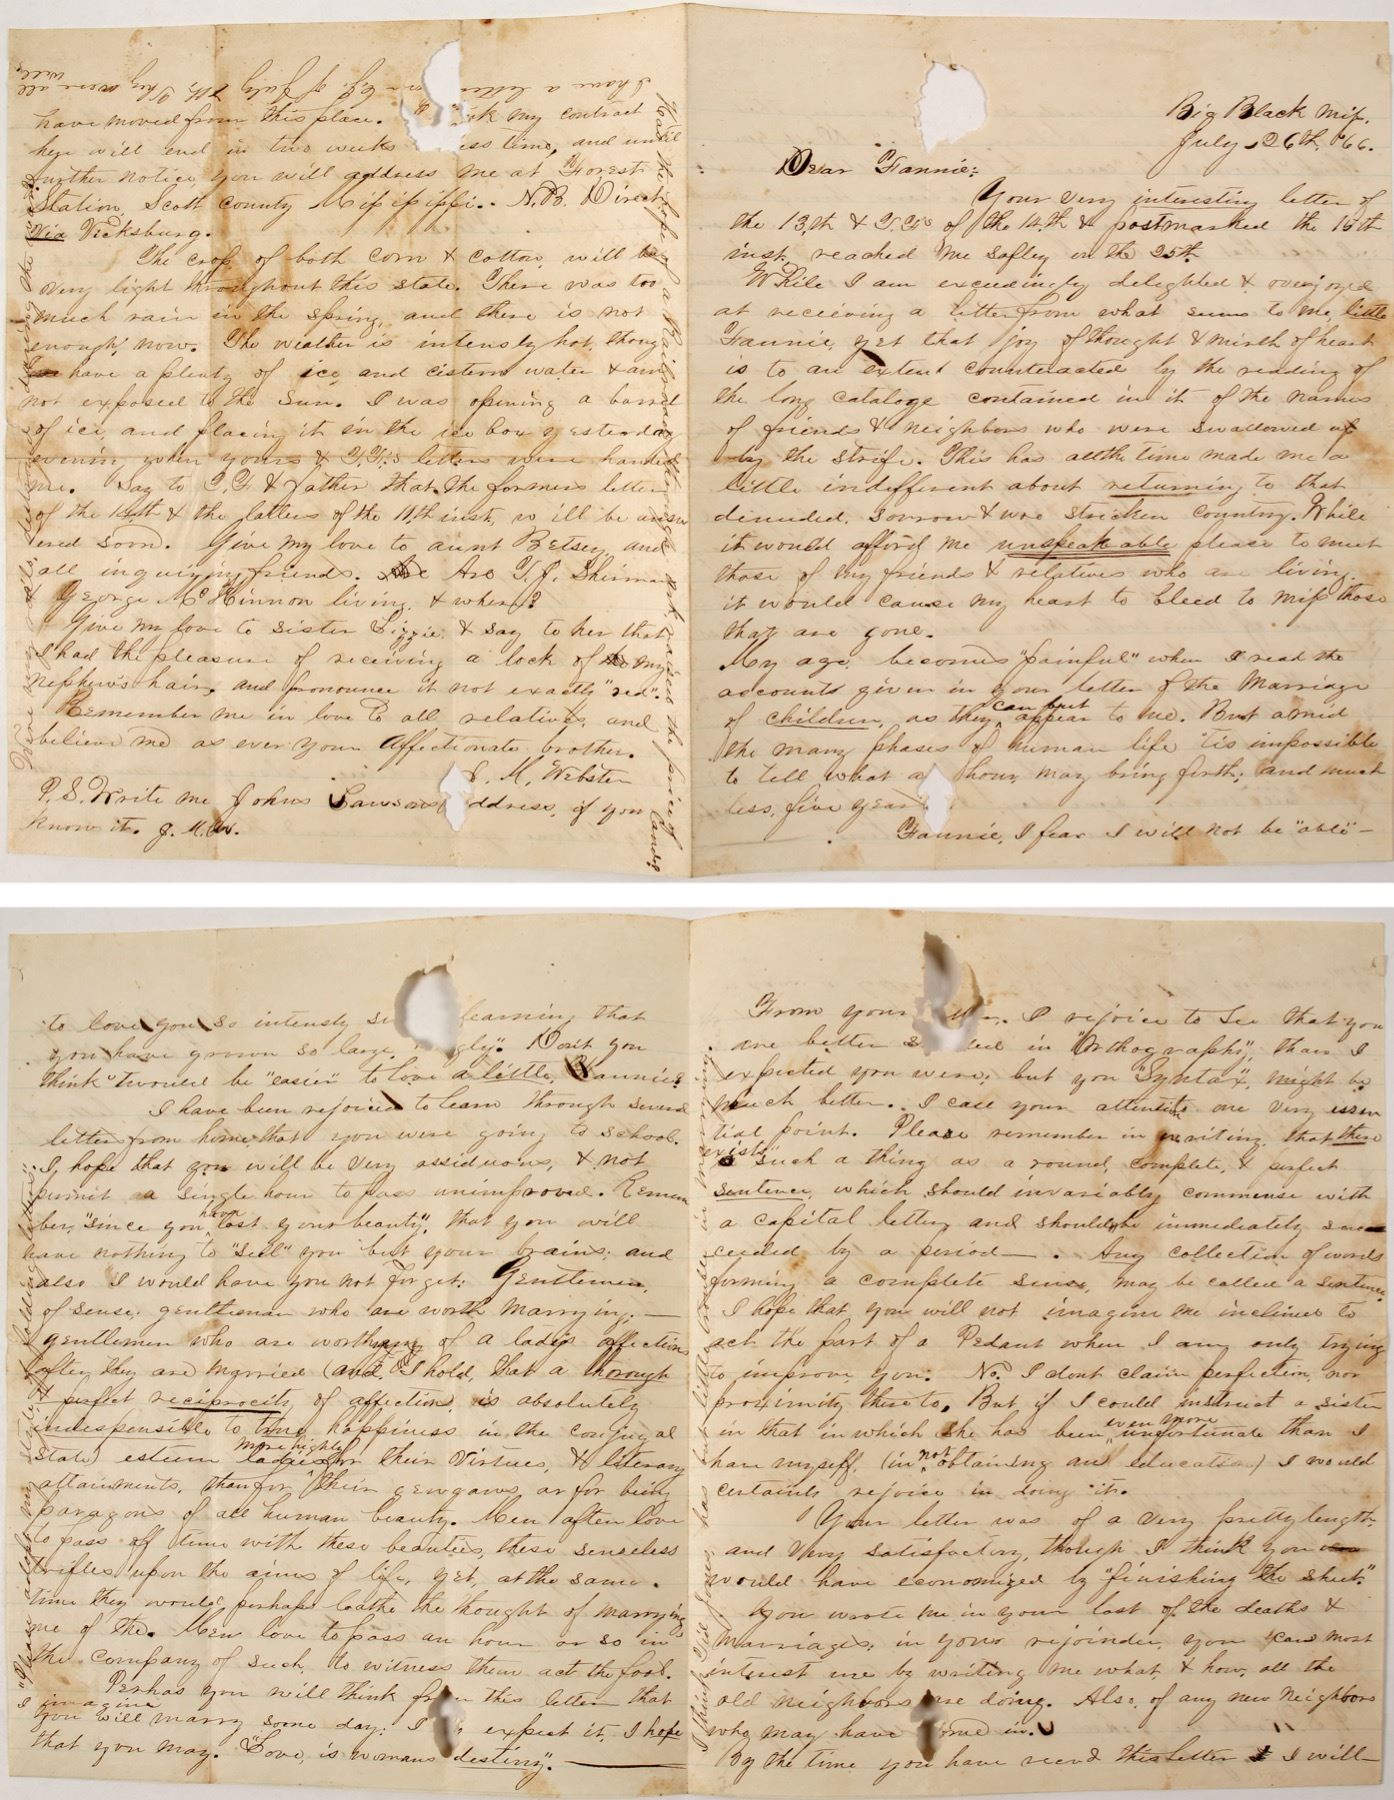 Big Black Miss.
July 26th, '66.
Dear Fannie:
Your very interesting letter of
the 13th & of the 14th & postmarked the
inst, reached me safley on the 25th
While I am exceedingly delighted & overjoyed
at receiving a letter from what seems to me, little
Fannie, yet that joy of thought & mirth of heart
is to an extent counteracted by the reading of
the long cataloge contained in it of the names
of friends & neighbors who were swallowed up
by the strife. This has all the time made me a
little indifferent about returning to that
denuded, sorrow & wo stricken country. While
it would afford me unspeakable please to meet
those of my friends & relatives who are living
it would cause my heart to bleed to miss those
that are gone.
My age, becomes "painful" when I read the
accounts given in your letter of the Marriage
of children, as they can but appear to me. But amid
the many phases of human life 'tis impossible
to tell what a hour may bring forth; and much
less, five year
Fannie, I fear I will not be "able" —
to love you so intensly learning that
you have grown so large, Don't you
think 'twould be "easier" to love a little, Fannie?
I have been rejoiced to learn through several
letters from home that you were going to school.
I hope that you will be very assiduous, & not
permit a single hour to pass unimproved. Remem
ber, "since you have lost your beauty", that you will
have nothing to "sell" you but your brains; and
also I would have you not forget: Gentlemen,
of sense; gentlemen who are worth marrying; —
gentlemen who are worthy of a ladys affection
after they are married (and I hold, that a thorough
& perfect reciprocity of affection, is absolutely
indespensible to true happiness in the conjugal
state) esteem ladies more highly for their virtues, & literary
attainments, than for their gewgaws, or for being
paragons of all human beauty. Men often love
to pass off time with these beauties, these senseless
trifles upon the aims of life, yet, at the same
time they would, perhaps loathe the thought of marrying
one of the. Men love to pass an hour or so in
the company of such, to witness them act the fool.
Perhas you will think from this letter that
I imagine you will marry some day: I expect it, I hope
that you may. "Love, is womans destiny". —
"Please
From your I rejoice to see that you
are better in "Orthography", than I
expected you were; but you "Syntax", might be
much better. I case your attention one very essen
tial point. Please remember in writing, that there
exists such a thing as a round, complete, & perfect
sentence, which should invariably commense with
a capital letter, and should be immediately suc
ceeded by a period — . Any collection of words
forming a complete sense, may be called a sentence.
I hope that, you will not imagine me inclined to
act the part of a Pedant when I am only trying
to improve you. No. I dont claim perfection, nor
proximity thereto, But if I could instruct a sister
in that in which she has been, even more unfortunate than I
have myself, (in not obtaining an education) I would
certainly rejoice in doing it.
Your letter was of a very pretty length,
and very satisfactory, though I think you
would have economized by "finishing the sheet."
You wrote me in your last of the deaths &
marriages; in your rejoinder, you can most
interest me by writing me what, & how, all the
old neighbors are doing. Also, of any new neighbors
who may have in.
By the time you have recevd this letter I will
have moved from this place. my contract
here will end in two weeks time, and until
further notice, you will address me at Forest
Station, Scott County Mississippi. N.B. Direct
Via Vicksburg.
The crop, of both corn & cotton, will be
very light throughout this state. There was too
much rain in the spring, and there is not
enough, now. The weather is intensly hot, though
have a plenty of ice, and cistern water & am
not exposed to the Sun. I was opening a barrel
of ice, and placing it in the ice box yesterday
evening when yours & letters were handed
me. Say to & Father that, the formers letter
of the & the latters of the 11th inst, will be answ
ered soon. Give my love to aunt Betsey, and
all inquiring friends. Are T.J. Sherman
George McKinnon living, & where?
Give my love to sister Lizzie & say to her that
I had the pleasure of receiving a lock of my
nephew's hair, and pronounce it not exactly "red".
Remember me in love to all relatives, and
believe me as ever your Affectionate brother.
J. M. Webster
P.S. Write me Johns Lawsons address, if you
know it. J. M. W.
I have a letter of July 7th. They were all
well.